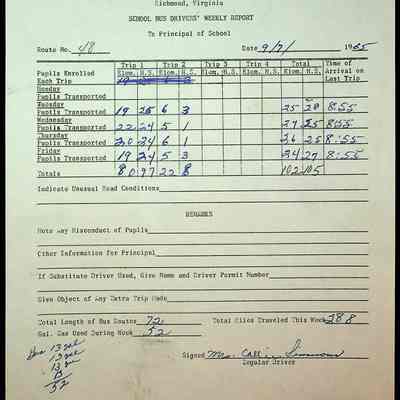 Richmond, Virginia
SCHOOL BUS DRIVERS' WEEKLY REPORT
To Principal of School
Route No. 48 Date 9/7/ 1965
Trip 1 Trip 2 Trip 3 Trip 4 Total Time of
Pupils Enrolled Elem. H.S. Elem. H.S. Elem. H.S. Elem. H.S. Elem. H.S. Arrival on
Each Trip Last Trip
Monday
Pupils Transported
Tuesday
Pupils Transported 19 25 6 3 25 28 8:55
Wednesday
Pupils Transported 22 24 5 1 27 25 8:55
Thursday
Pupils Transported 20 24 6 1 26 25 8:55
Friday
Pupils Transported 19 24 5 3 24 27 8:55
Totals 80 97 22 8 102 105
Indicate Unusual Road Conditions
REMARKS
Note Any Misconduct of Pupils
Other Information for Principal
If Substitute Driver Used, Give Name and Driver Permit Number
Give Object of Any Extra Trip Made
Total Length of Bus Routes 72 Total Miles Traveled This Week 288
Gal. Gas Used During Week 52
13
13
13
13
52
Signed Mrs.
Regular Driver